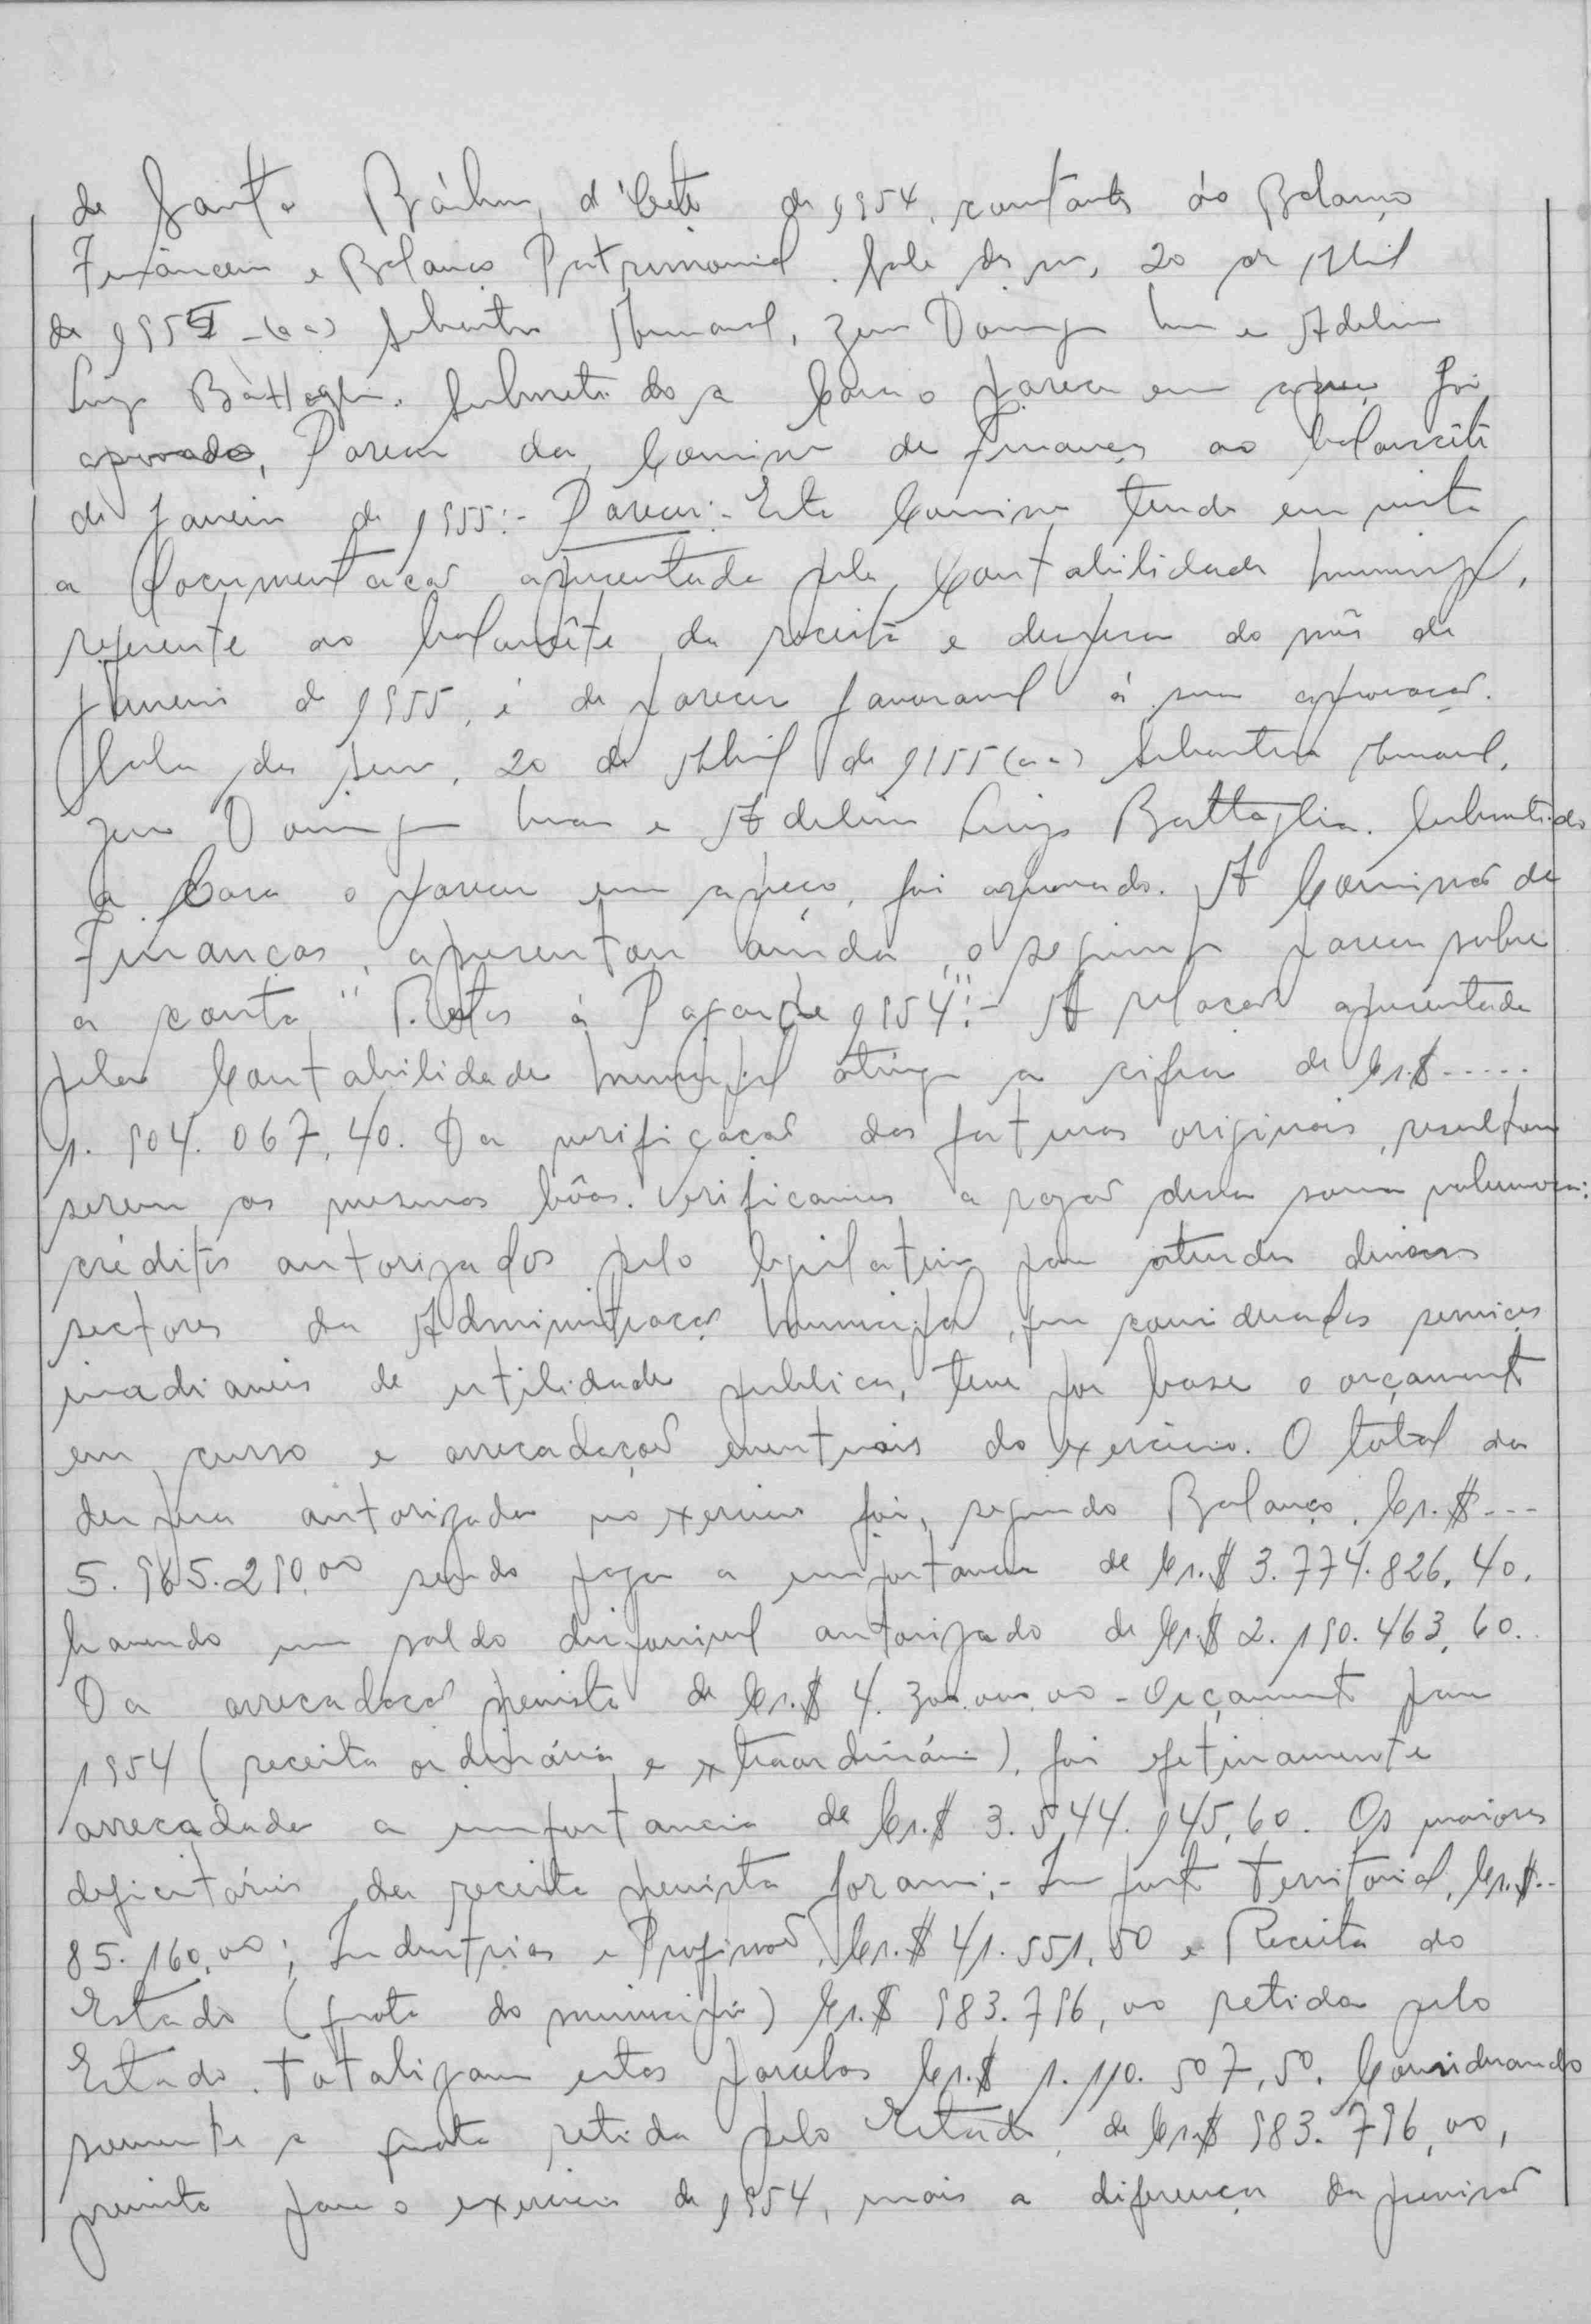 de Santa Bárbara d'Oeste de 1954, constantes do Balanço
Financeiro e Balanço Patrimonial. Sala das ses., 20 de Abril
de 1955 - (aa) Sebastião Amaral, Domingos e Adelino
Luiz Battaglia. Submetido a Casa o parecer em apreço foi
aprovado, Parecer da Comissão de Finanças ao balancête
de Janeiro de 1955:- Parecer:- Esta Comissão tendo em vista
a documentação apresentada pela Contabilidade Municipal,
referente ao balancête da receita e despesa do mês de
Janeiro de 1955, é de parecer favoravel á sua aprovação.
Sala das ses., 20 de Abril de 1955 (aa) Sebastião Amaral,
Domingos e Adelino Luiz Battaglia. Submetido
a Casa o parecer em apreço, foi aprovado. A Comissão de
Finanças, apresentou ainda, o seguinte parecer sobre
a conta "Restos á Pagar de 1954":- A relação apresentada
pela Contabilidade Municipal atinge a cifra de Cr.$.....
1.904.067,40. Da verificação das faturas originais, resultou
serem as mesmas bôas. Verificamos a razão dessa soma volumosa:
créditos autorizados pelo legislativo para atender diversos
sectores da Administração Municipal, em considerados serviços
inadiaveis de utilidade publica, teve por base o orçamento
em curso e arrecadação eventuais do exercicio. O total da
despesa autorizada no exercicio foi, segundo Balanço, Cr.$...
5.965.290,00 sendo paga a importancia de Cr.$ 3.774.826,40,
havendo um saldo disponivel autorizado de Cr.$ 2.190.463,60.
Da arrecadação prevista de Cr.$ 4.300.000,00 - Orçamento para
1954 (receita ordinária e extraordinária), foi efetivamente
arrecadada a importancia de Cr.$ 3.544.945,60. Os maiores
deficitários da receita prevista foram:- Imposto Territorial, Cr.$..
85.160,00; Industrias e Profissões, Cr.$ 41.551,50 e Receita do
Estado (quota do municipio) Cr.$ 983.796,00 retida pelo
Estado. Totalizam estas parcelas Cr.$ 1.110.507,50. Considerando
somente a quota retida pelo Estado, de Cr.$ 983.796,00,
prevista para o exercicio de 1954, mais a diferença da previsão